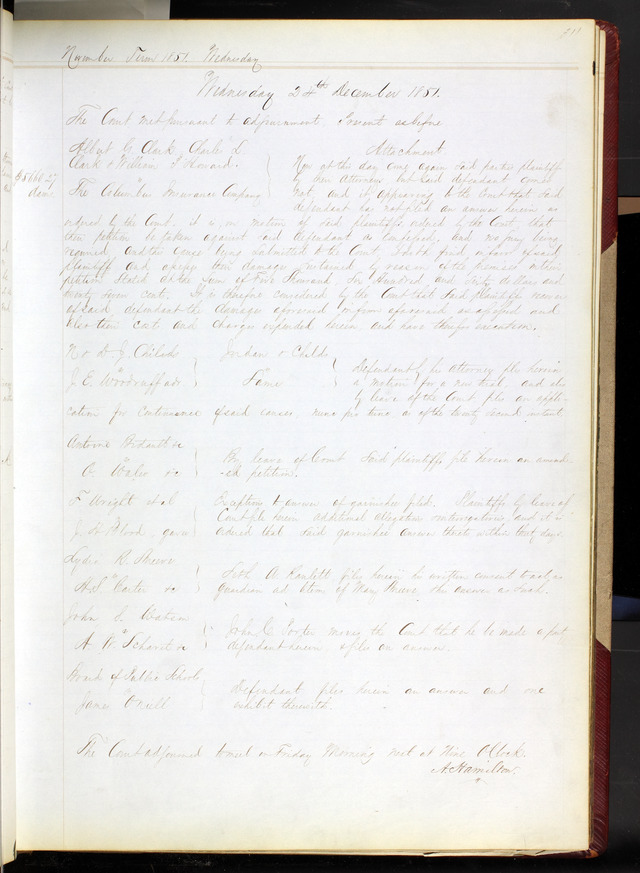 November Term 1851. Wednesday
Wednesday 24th December 1851.
The Court met pursuant to adjournment. Present as before
Albert G. Clark, Charles L. Attachment
Clark & William F. Howard.
Now at this day come again said parties plaintiff
by their Attorney but said defendant comes
The Columbus Insurance Company
not, and it appearing to the Court that said
$5660 27
dam.
defendant has neglected an answer herein as
ordered by the Court, it is on motion of said plaintiffs ordered by the Court, that
their petition be taken against said defendant as confessed, and no jury being
required, and the cause being submitted to the Court, doth find in favor of said
plaintiff and assess their damages sustained by reason of the premises in their
petition stated at the sum of Five thousand, Six Hundred and Sixty dollars and
twenty seven cents. It is therefore considered by the Court that said plaintiffs recover
of said defendant the damages aforesaid in form aforesaid as assessed and
also their cost and charges expended herein, and have therefor execution.
N & D J. Childs Jordan & Childs
vs
J. E. Woodruff adr Same
Defendant by his attorney files herein
a motion for a new trial, and also
by leave of the Court files an appli-
cation for continuance of said causes, nunc pro tunc as of the twenty second instant.
Antoine &c
By leave of Court said plaintiffs file herein an amend-
ed petition.
F Wright et al
Exceptions to answer of garnishee filed. Plaintiffs by leave of
Court file herein additional allegations & interrogatories, and it is
J. H. Blood, garn
ordered that said garnishee answer thereto within ten days.
Lydia R.
Seth A. Ranlett files herein his written consent to act as
H. S. Carter &c
guardian ad litem of Mary & answer as such.
John S. Watson
John C. Porter moves the Court that he be made a party
N. W. &c
defendant herein & files an answer.
Board of Public Schools
Defendant files herein an answer and one
James O'Neill
exhibit therewith.
The Court adjourned to meet on Friday Morning next at Nine O'Clock.
A. Hamilton.